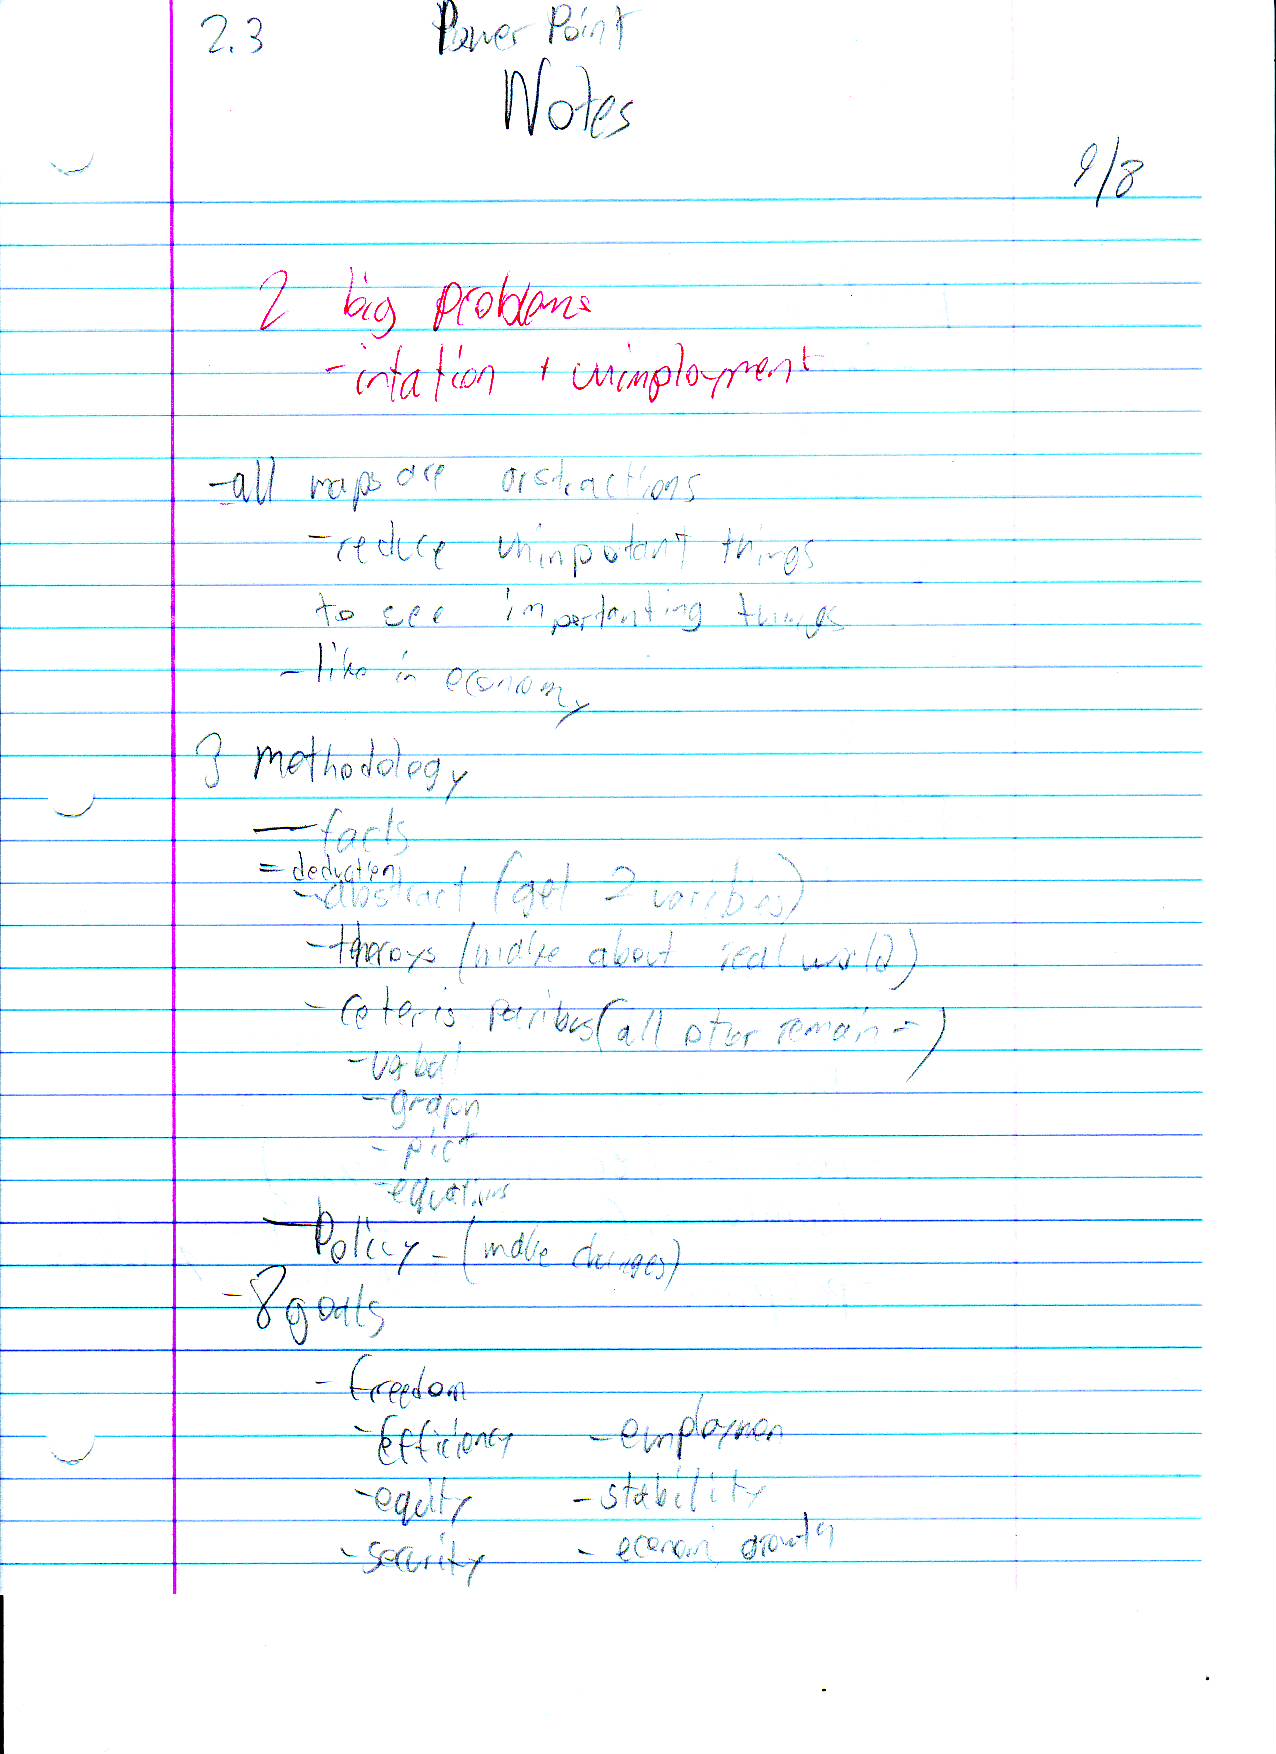 2.3 Power Point
Notes
9/8
2 big problems
- intation + unimployment
- all maps are abstractions
- reduce unimpotant things
to see importanting things
- like in economy
3 methodology
- facts
= deduction
- abstract (get 2 varibles)
- theroys (make about real world)
- Ceteris paribus (all other remain =)
- verbal
- graph
- pict
- equations
- Policy - (make changes)
- 8 goals
- freedom
- Efficiency - employmen
- equity - stability
- security - econom growth